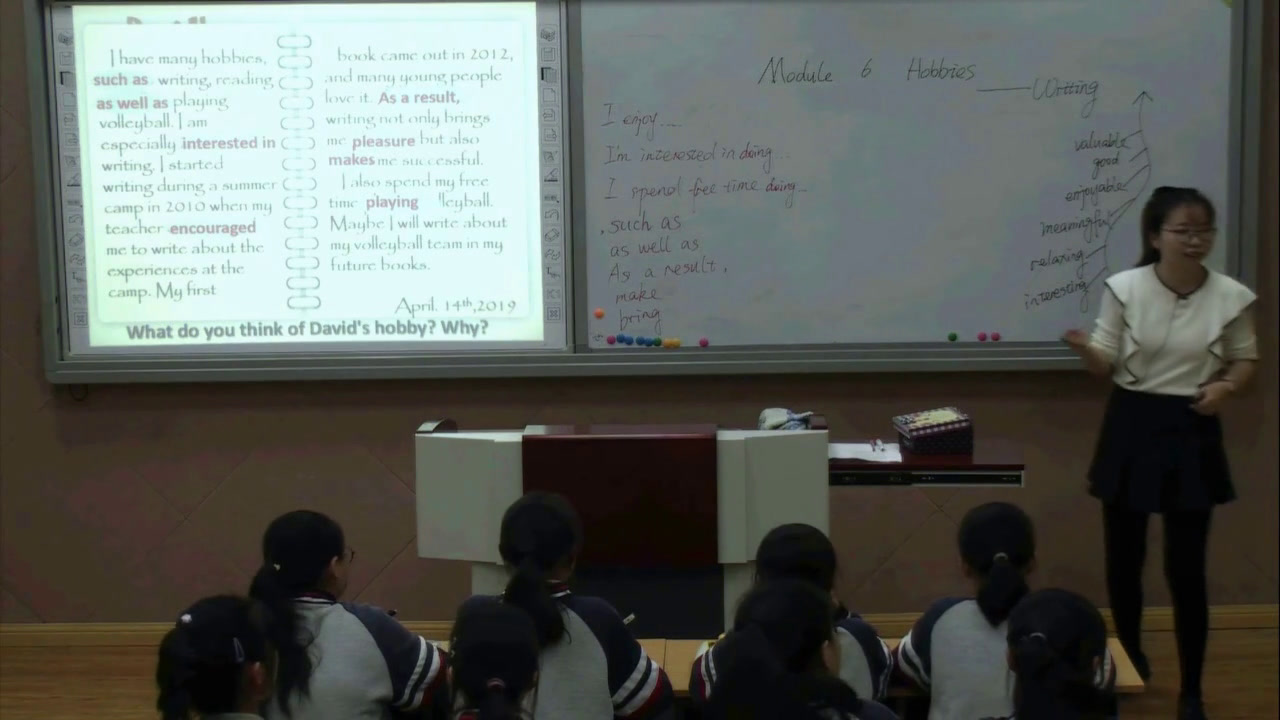 I have many hobbies,
such as writing, reading
as well as playing
volleyball. I am
especially interested in
writing. I started
writing during a summer
camp in 2010 when my
teacher encouraged
me to write about the
experiences at the
camp. My first
book came out in 2012,
and many young people
love it. As a result,
writing not only brings
me pleasure but also
makes me successful.
I also spend my free
time playing lleyball.
Maybe I will write about
my volleyball team in my
future books.
April. 14th,2019
What do you think of David's hobby? Why?
Module 6 Hobbies
Writing
I enjoy....
I'm interested in doing...
I spend free time doing...
such as
as well as
As a result,
make
bring
valuable
good
enjoyable
meaningful
relaxing
interesting